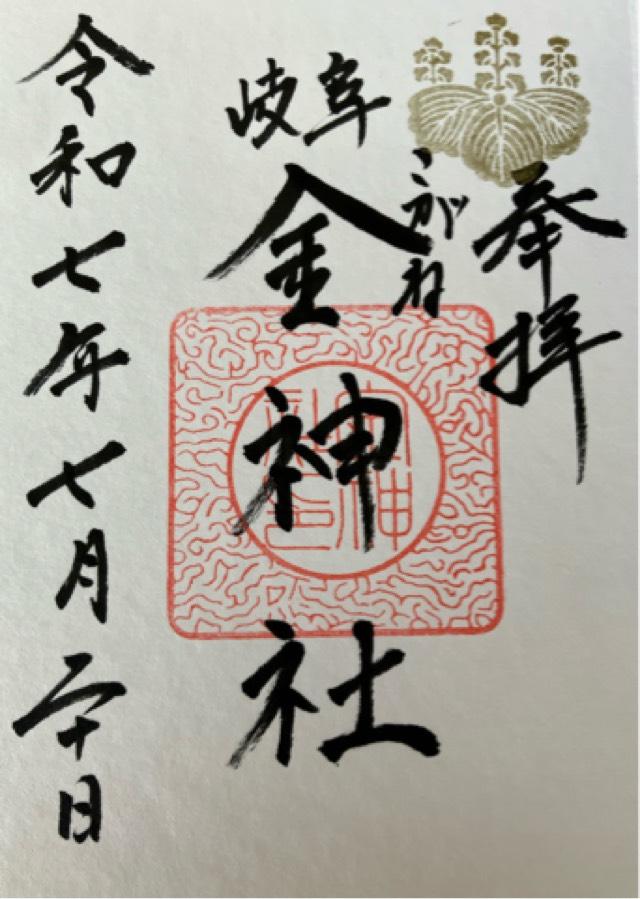 奉拝
こがね
岐阜
金神社
令和七年七月二十日